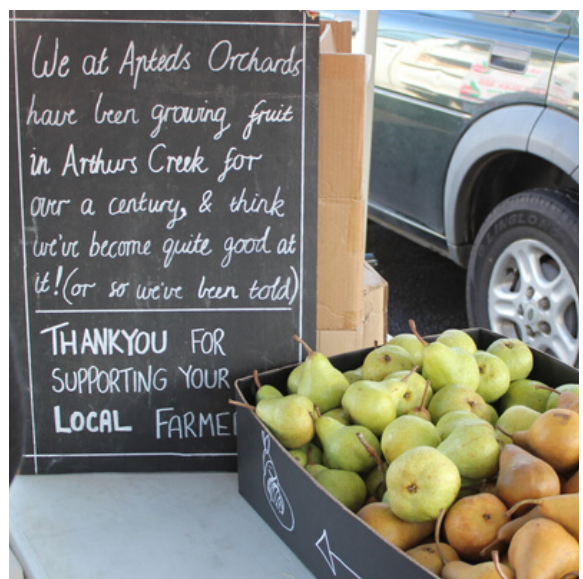 We at Apteds Orchards
have been growing fruit
in Arthurs Creek for
over a century, & think
we've become quite good at
it! (or so we've been told)
THANKYOU FOR
SUPPORTING YOUR
LOCAL FARME